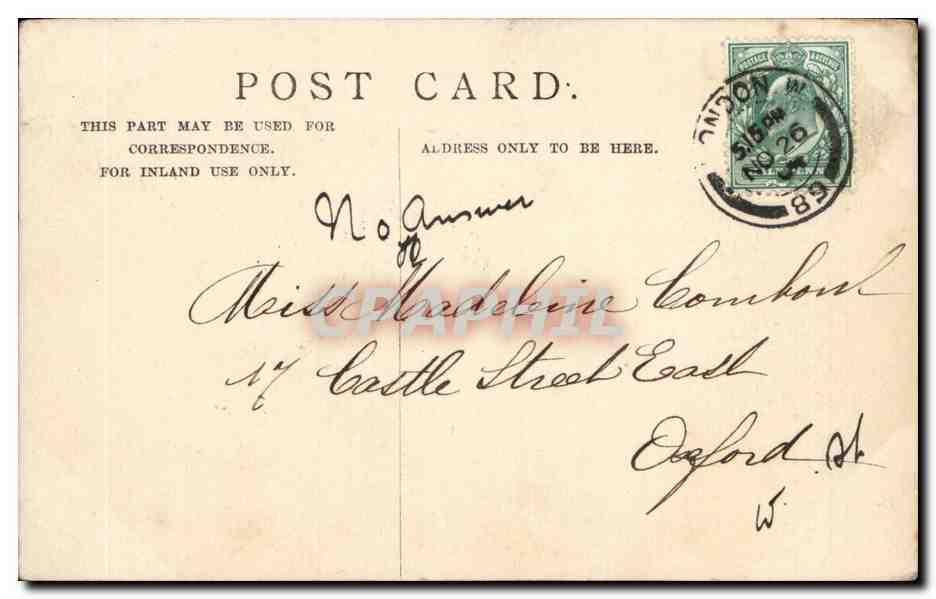 POST CARD.
THIS PART MAY BE USED FOR
CORRESPONDENCE.
FOR INLAND USE ONLY.
ADDRESS ONLY TO BE HERE.
POSTAGE & REVENUE
LONDON W
5.15 PM
NO 26
89
No Answer
Miss Madeleine
CPAPHIL
17 Castle Street East
Oxford St.
W.